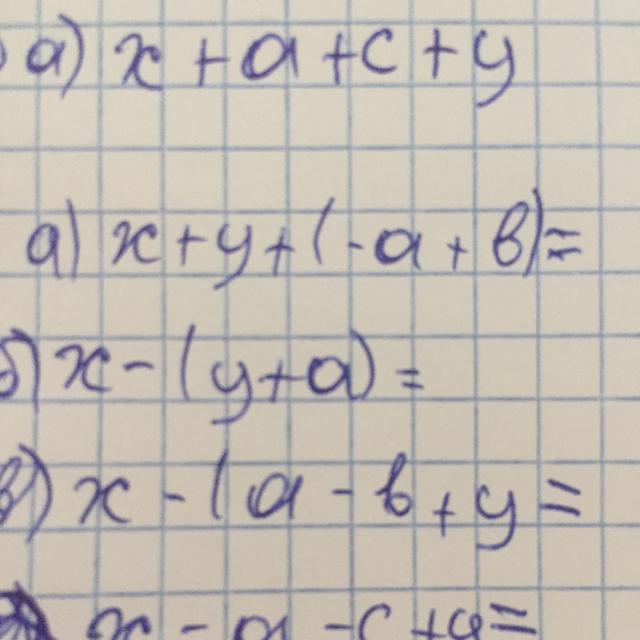 а) x + a + c + y
а) x + y + (-a + b) =
б) x - (y + a) =
в) x - (a - b + y =
x - a - c + y =